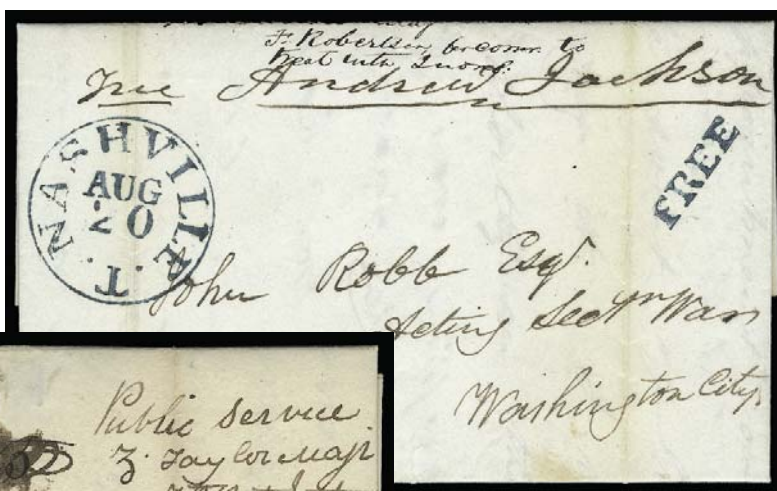 F. Robertson, become to
treat with
Free Andrew Jackson
NASHVILLE. T.
AUG
20
FREE
John Robb Esqr.
Acting Secty War
Washington City
Public Service
Z. Taylor Majr